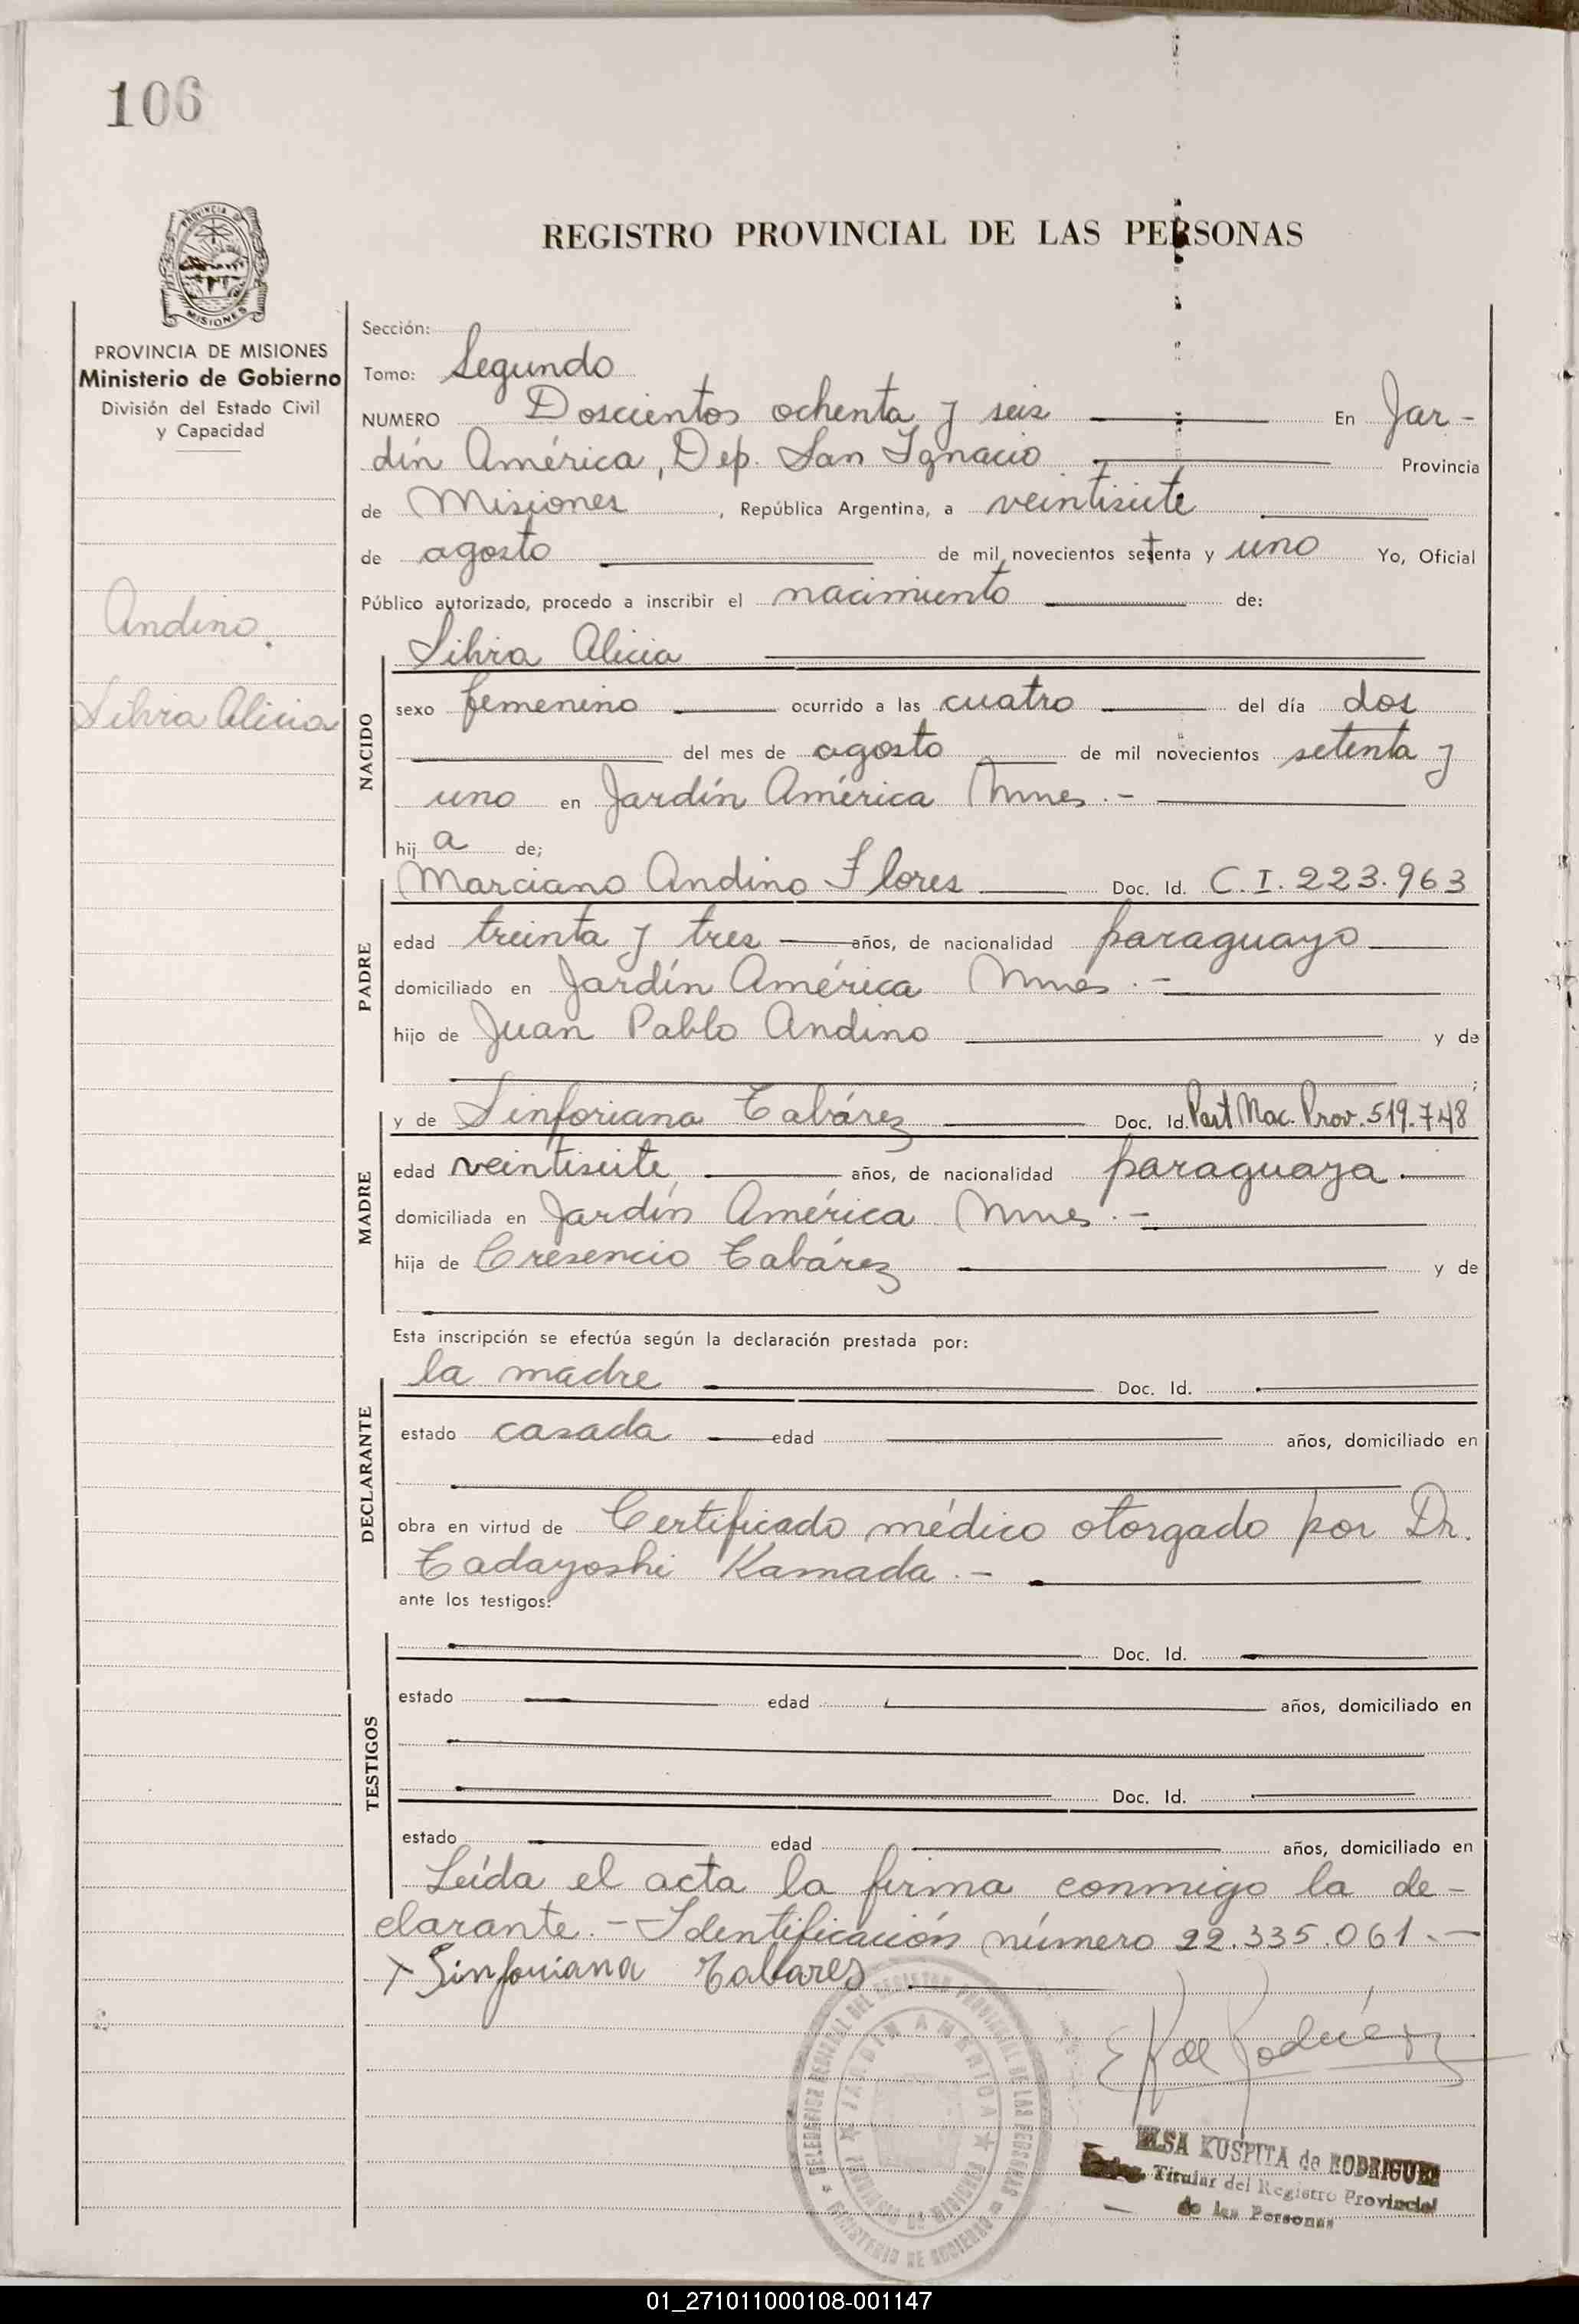 106
REGISTRO PROVINCIAL DE LAS PERSONAS
PROVINCIA DE MISIONES
Ministerio de Gobierno
División del Estado Civil
y Capacidad
Andino.
Silvia Alicia
Sección:
Tomo: Segundo
NUMERO Doscientos ochenta y seis En Jar-
dín América, Dep. San Ignacio Provincia
de Misiones, República Argentina, a veintisiete
de agosto de mil novecientos setenta y uno Yo, Oficial
Público autorizado, procedo a inscribir el nacimiento de:
NACIDO
Silvia Alicia
sexo femenino ocurrido a las cuatro del día dos
del mes de agosto de mil novecientos setenta y
uno en Jardín América Mnes.-
hij a de;
PADRE
Marciano Andino Flores Doc. Id. C.I. 223.963
edad treinta y tres años, de nacionalidad paraguayo
domiciliado en Jardín América Mnes.-
hijo de Juan Pablo Andino y de
;
MADRE
y de Sinforiana Tabárez Doc. Id. Part Nac. Prov. 519.748
edad veintisiete años, de nacionalidad paraguaya
domiciliada en Jardín América Mnes.-
hija de Cresencio Tabárez y de
Esta inscripción se efectúa según la declaración prestada por:
DECLARANTE
la madre Doc. Id.
estado casada edad años, domiciliado en
obra en virtud de Certificado médico otorgado por Dr.
Tadayoshi Kamada.-
ante los testigos:
TESTIGOS
Doc. Id.
estado edad años, domiciliado en
Doc. Id.
estado edad años, domiciliado en
Leída el acta la firma conmigo la de-
clarante.- Identificación número 22.335.061.-
x Sinforiana Tabares
E K de Rodríguez
ELSA KUSPITA de RODRIGUEZ
Titular del Registro Provincial
de las Personas
01_271011000108-001147